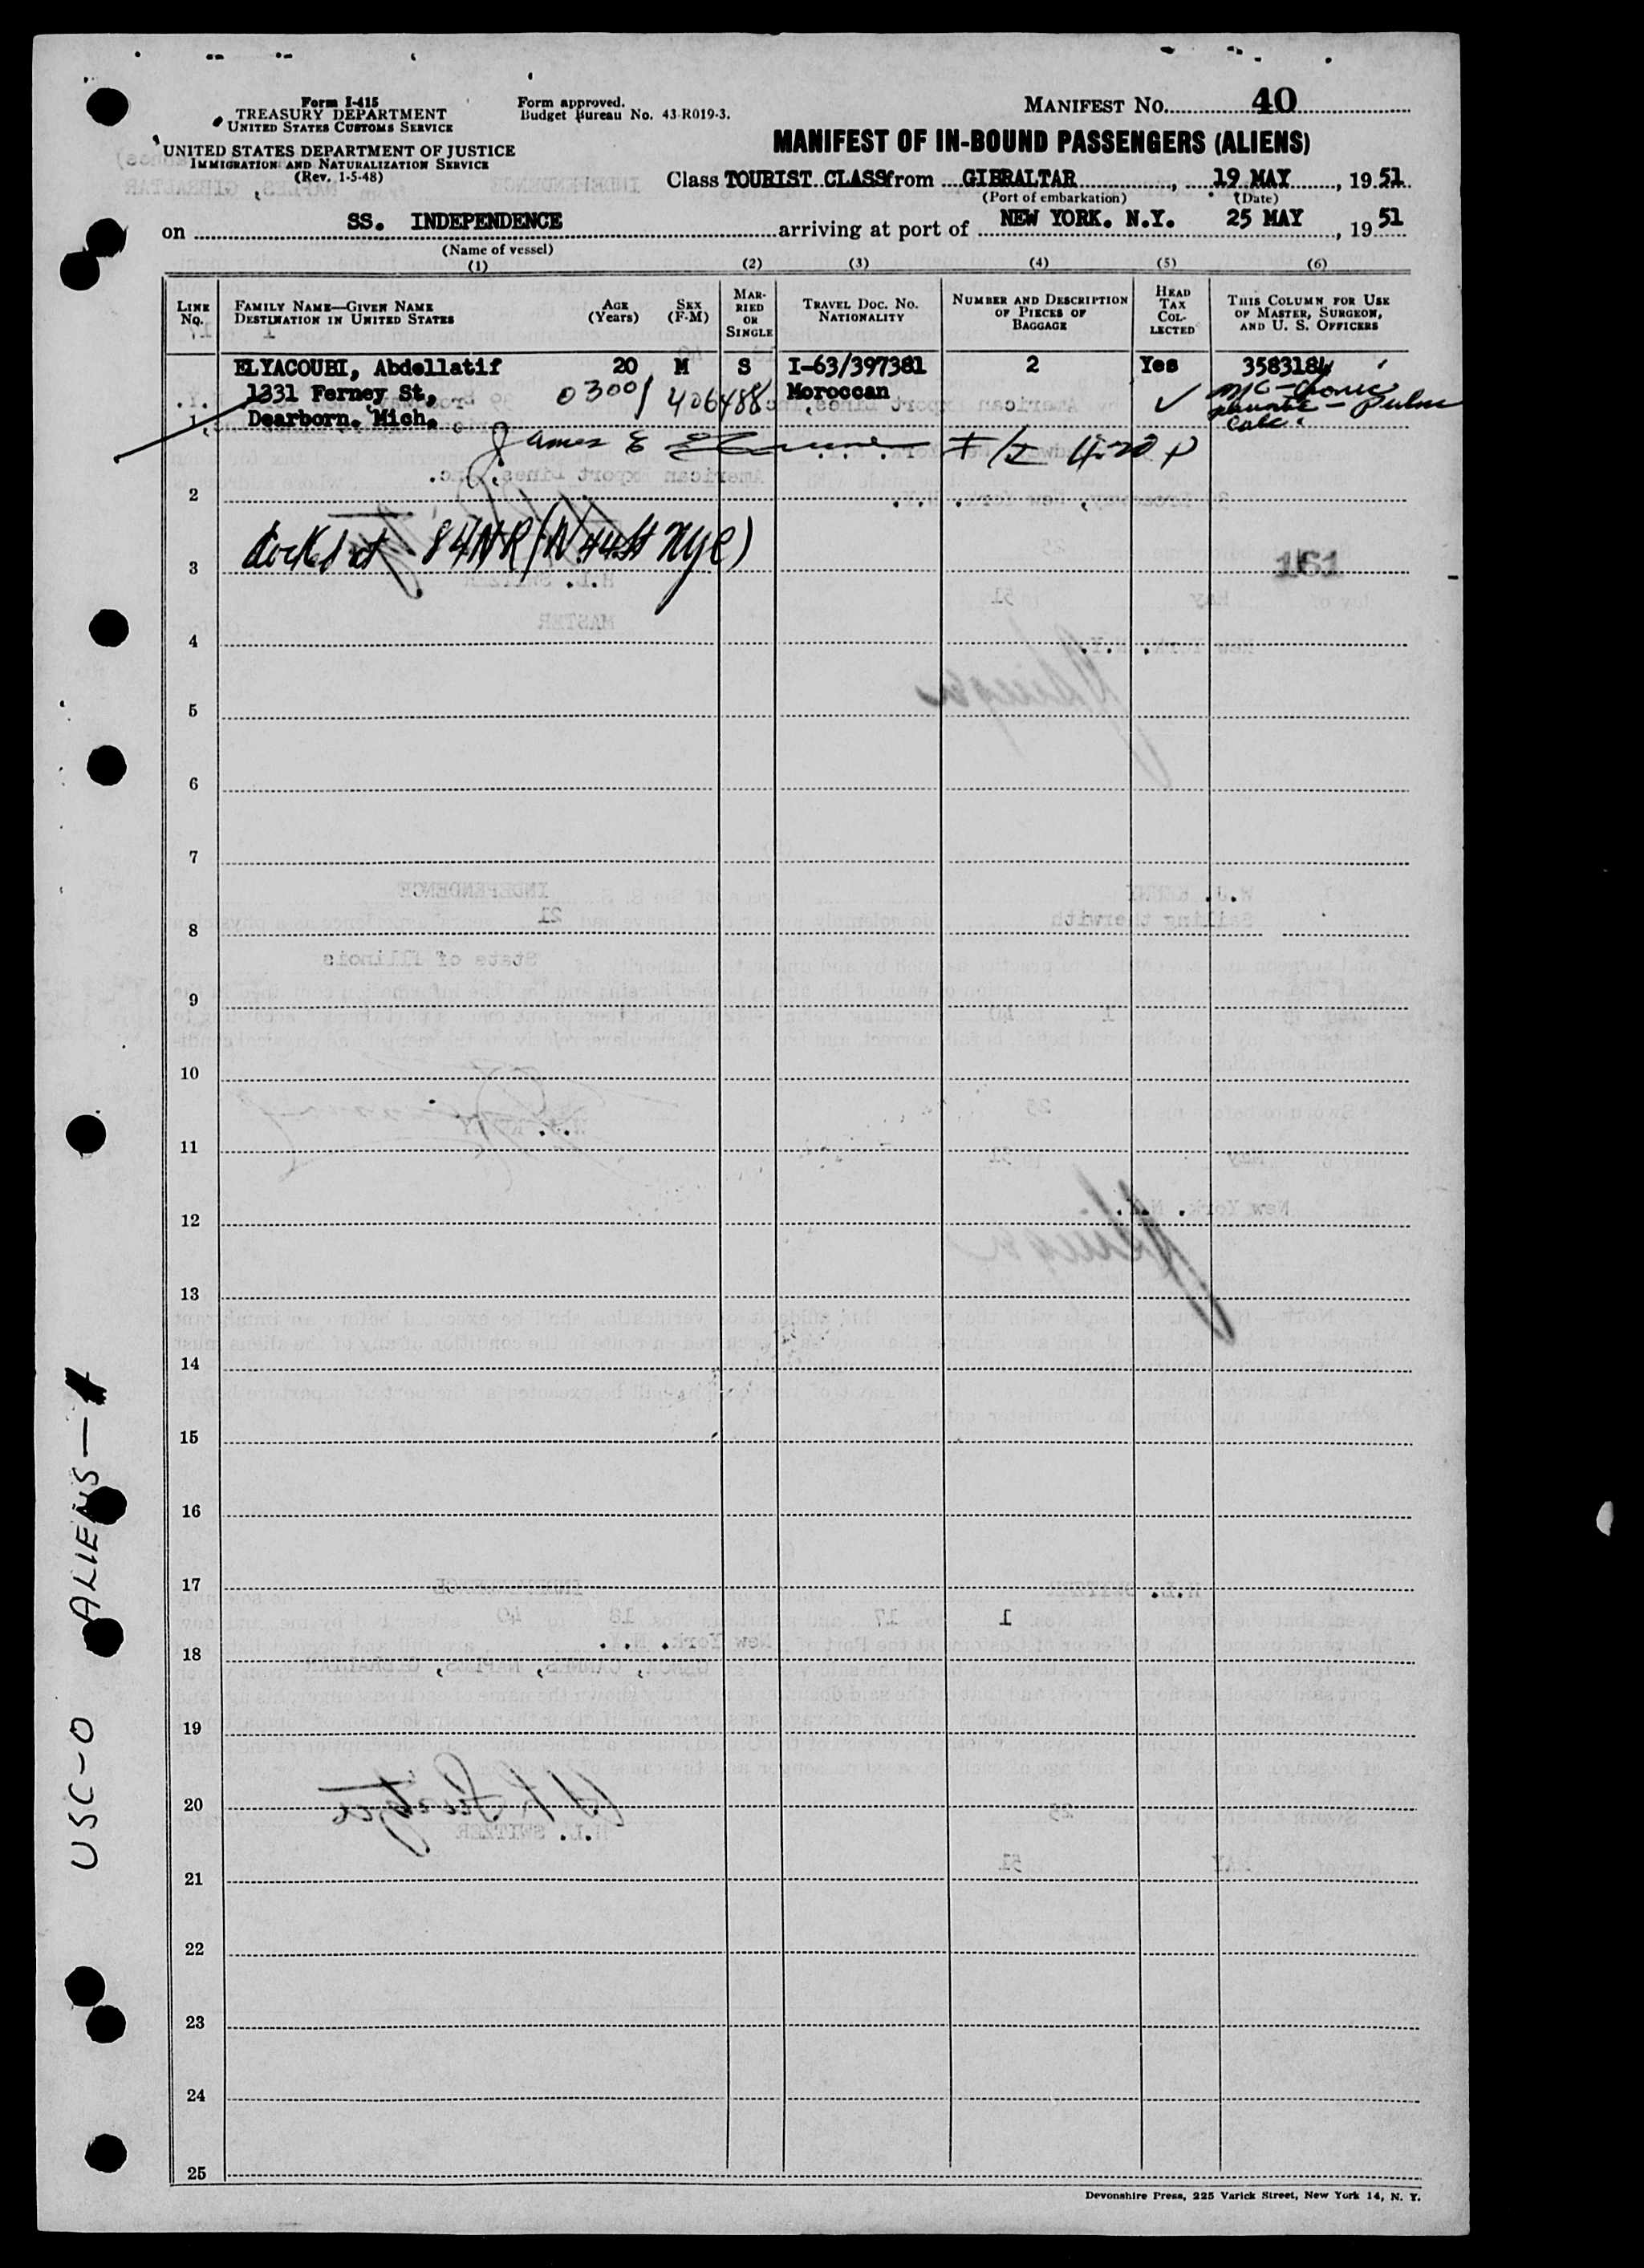 Form I-415
TREASURY DEPARTMENT
UNITED STATES CUSTOMS SERVICE
UNITED STATES DEPARTMENT OF JUSTICE
IMMIGRATION AND NATURALIZATION SERVICE
(Rev. 1-5-48)
Form approved.
Budget Bureau No. 43-R019-3.
MANIFEST NO. 40
MANIFEST OF IN-BOUND PASSENGERS (ALIENS)
Class TOURIST CLASS from GIBRALTAR, 19 MAY, 1951
(Port of embarkation) (Date)
on SS. INDEPENDENCE arriving at port of NEW YORK. N.Y. 25 MAY, 1951
(Name of vessel)
(1) (2) (3) (4) (5) (6)
LINE NO.
FAMILY NAME—GIVEN NAME
DESTINATION IN UNITED STATES
AGE (Years)
SEX (F-M)
MARRIED OR SINGLE
TRAVEL DOC. NO.
NATIONALITY
NUMBER AND DESCRIPTION OF PIECES OF BAGGAGE
HEAD TAX COLLECTED
THIS COLUMN FOR USE OF MASTER, SURGEON, AND U. S. OFFICERS
ELYACOUBI, Abdellatif 20 M S I-63/397381 2 Yes 3583184
1331 Ferney St, 0300/ 406488 Moroccan
1 Dearborn. Mich.
James E 4:20 P
2
docked at 84 NR (W 44 St NYC)
3
161
4
5
6
7
8
9
10
11
12
13
14
15
16
17
18
19
20
21
22
23
24
25
USC-0 ALIENS-1
Devonshire Press, 225 Varick Street, New York 14, N. Y.